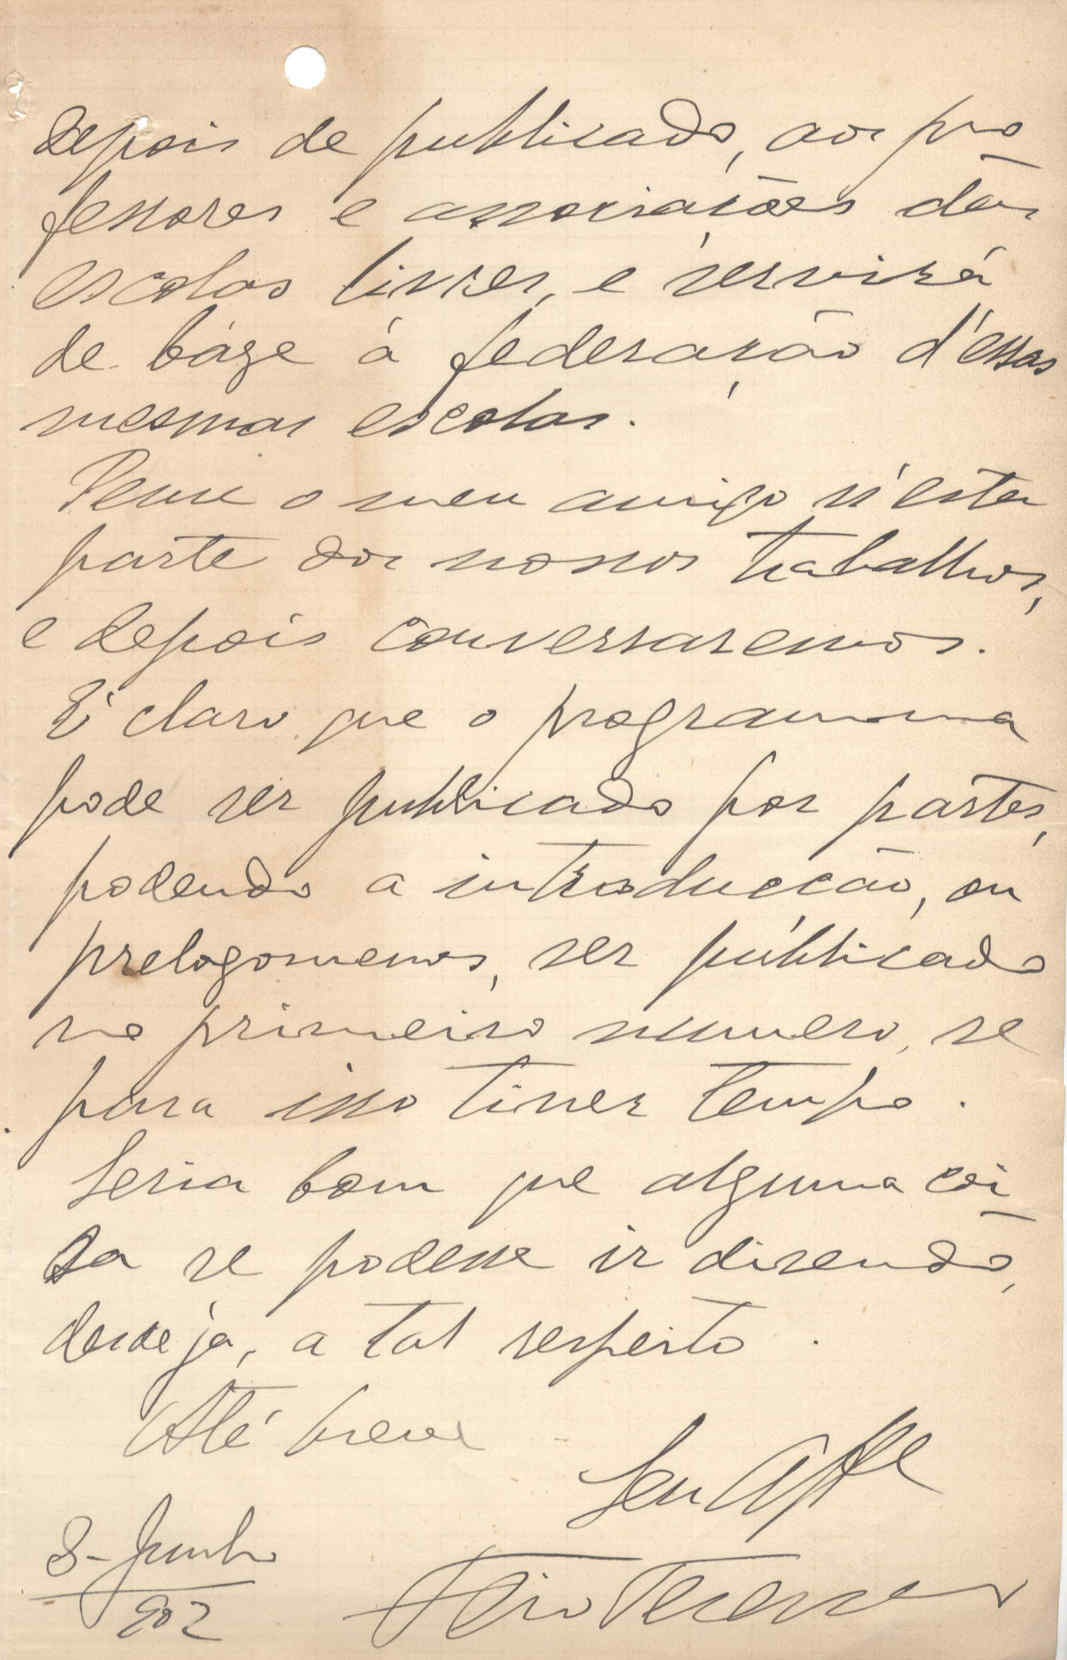 depois de publicado, aos pro
fessores e associações das
escolas livres, e servirá
de báze á federação d'essas
mesmas escolas.
Pense o meu amigo n'esta
parte dos nossos trabalhos,
e depois conversaremos.
É claro que o programma
pode ser publicado por partes,
podendo a introducção, ou
prelogomenos, ser publicado
no primeiro numero, se
para isso tiver tempo.
Seria bom que alguma coi
sa se podesse ir dizendo,
desde já, a tal respeito.
Até breve
Seu
8-Junho
902